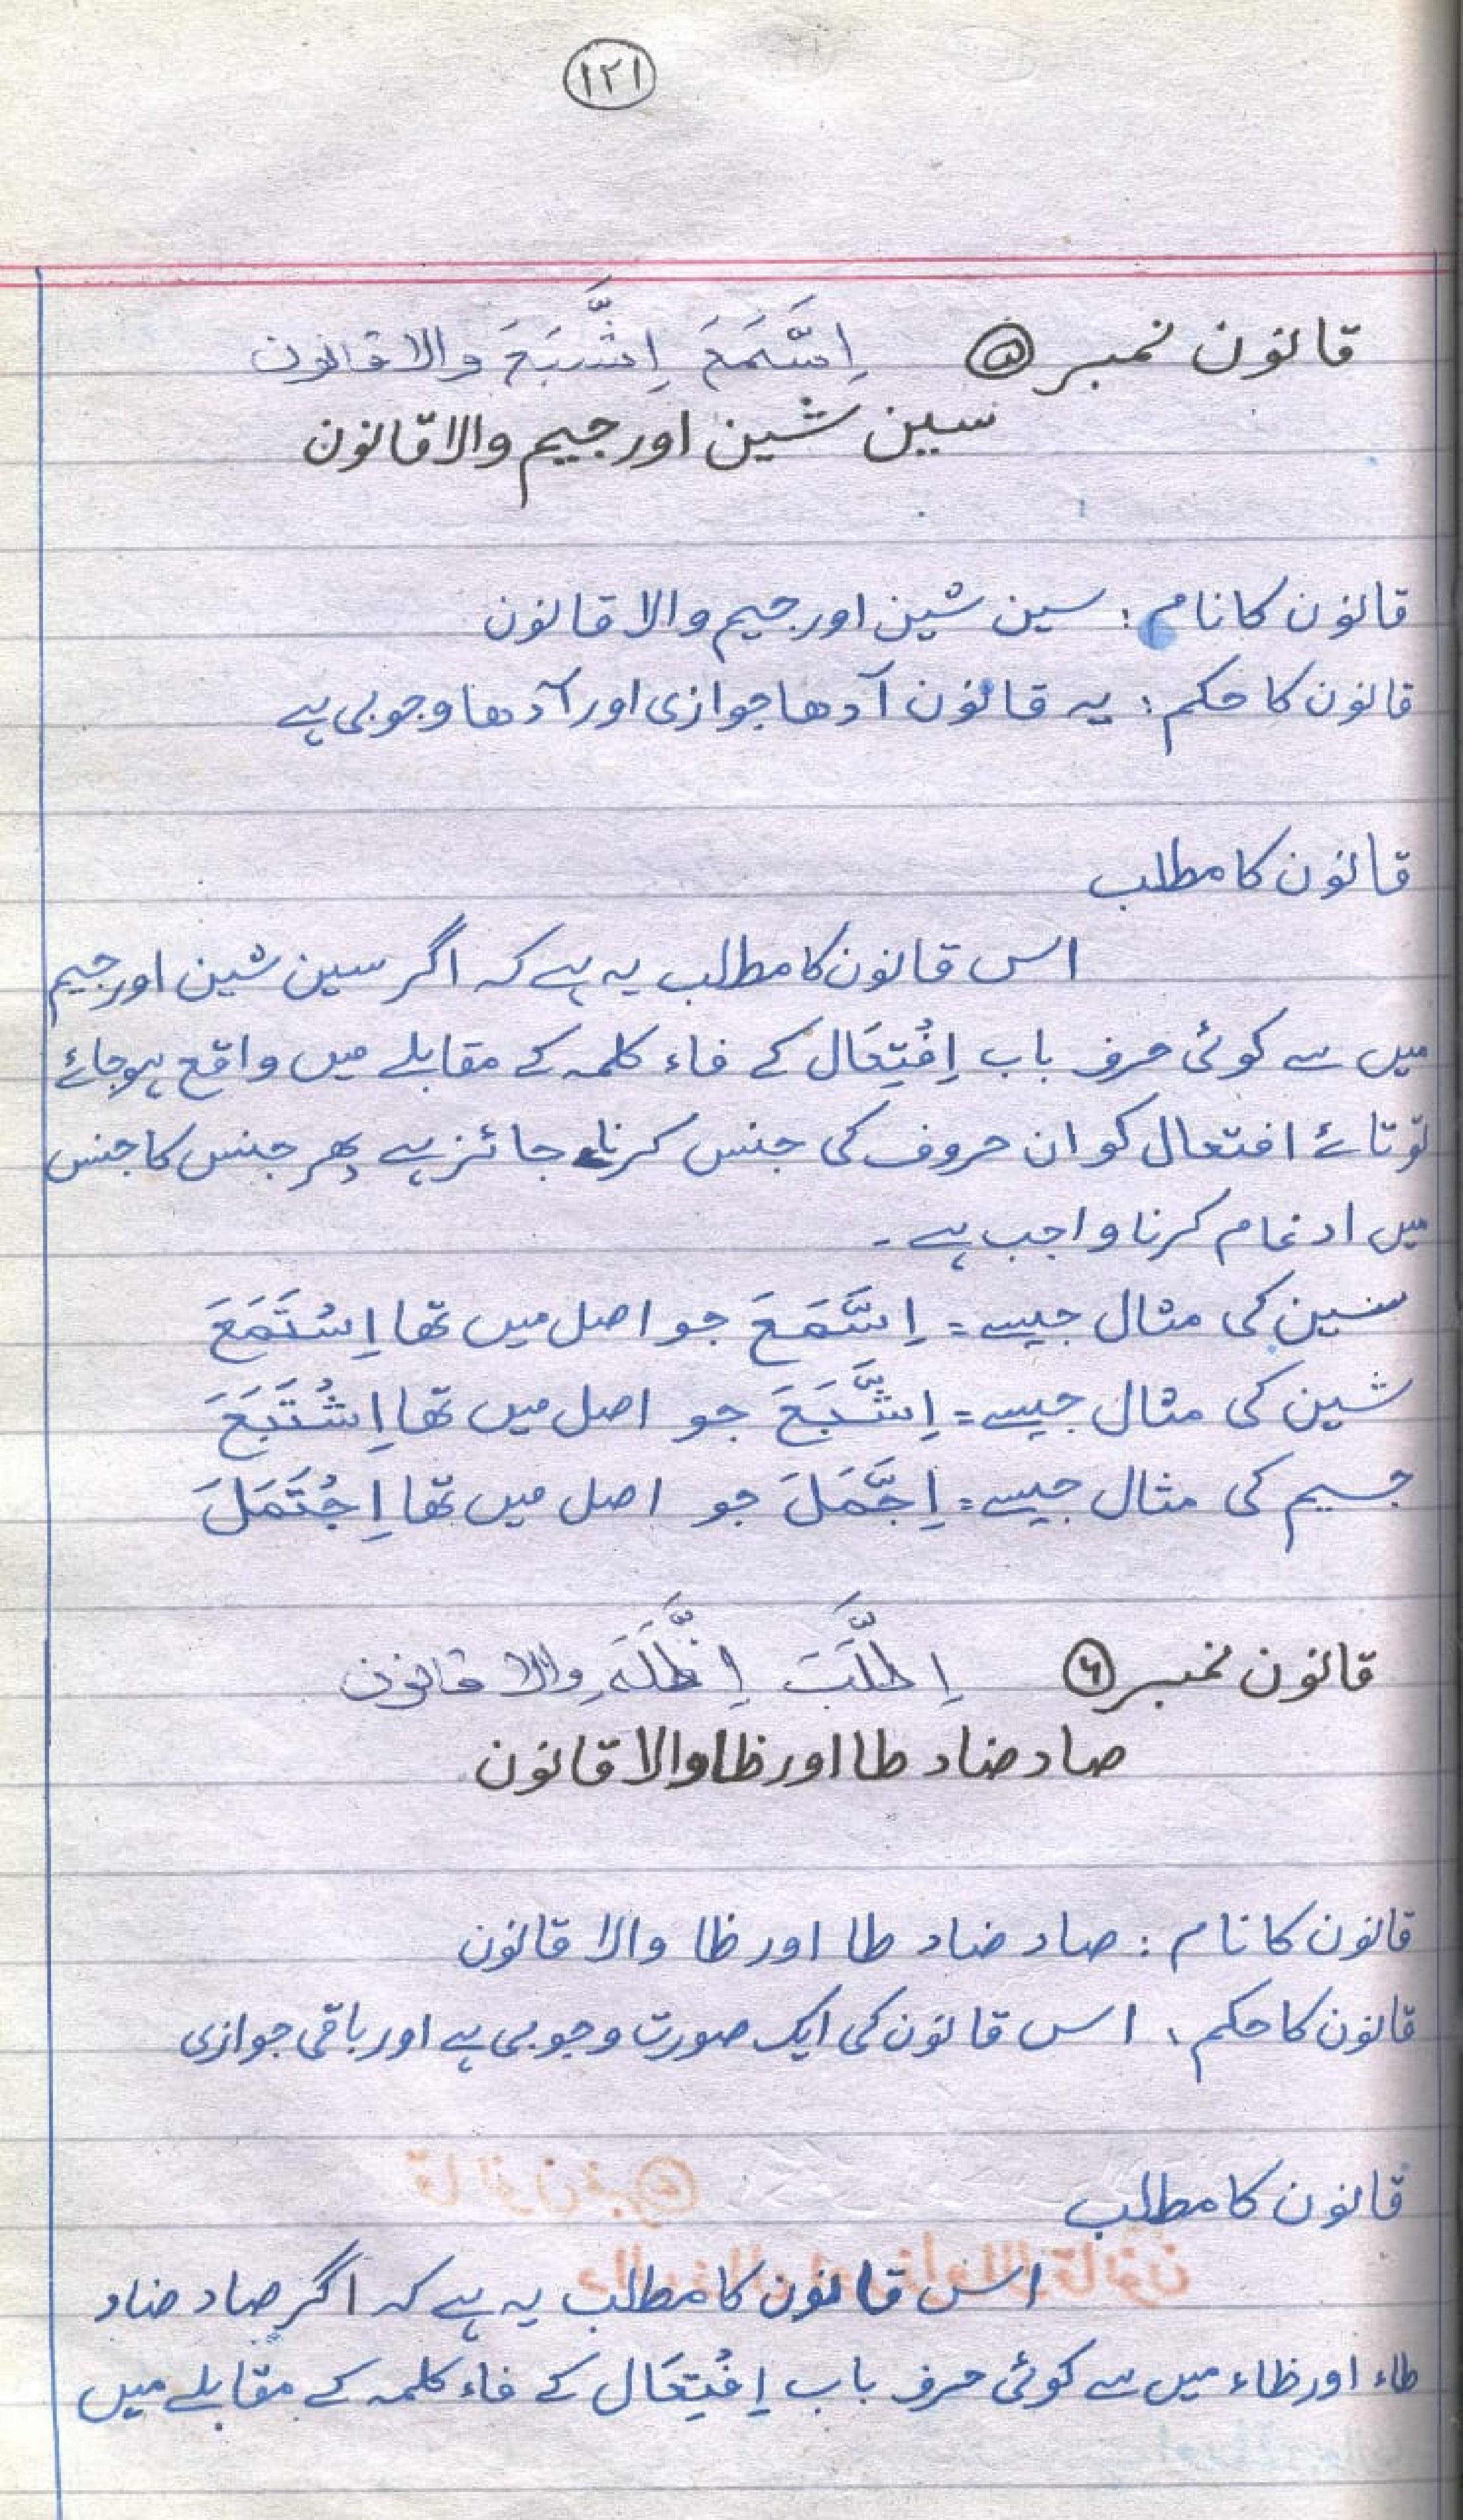 ۱۲۱
قانون نمبر ۵ اِسَّمَعَ اِشَّبَعَ والا قانون
سین شین اور جیم والا قانون
قانون کا نام : سین شین اور جیم والا قانون
قانون کا حکم : یہ قانون آدھا جوازی اور آدھا وجوبی ہے
قانون کا مطلب
اس قانون کا مطلب یہ ہے کہ اگر سین شین اور جیم
میں سے کوئی حرف باب اِفْتِعَال کے فاء کلمہ کے مقابلے میں واقع ہو جائے
تو تائے افتعال کو ان حروف کی جنس کرنا جائز ہے پھر جنس کا جنس
میں ادغام کرنا واجب ہے ۔
سین کی مثال جیسے = اِسَّمَعَ جو اصل میں تھا اِسْتَمَعَ
شین کی مثال جیسے = اِشَّبَعَ جو اصل میں تھا اِشْتَبَعَ
جیم کی مثال جیسے = اِجَّمَلَ جو اصل میں تھا اِجْتَمَلَ
قانون نمبر ۶ اِطَّلَبَ اِظَّلَمَ والا قانون
صاد ضاد طا اور ظا والا قانون
قانون کا نام : صاد ضاد طا اور ظا والا قانون
قانون کا حکم : اس قانون کی ایک صورت وجوبی ہے اور باقی جوازی
قانون کا مطلب
اس قانون کا مطلب یہ ہے کہ اگر صاد ضاد
طاء اور ظاء میں سے کوئی حرف باب اِفْتِعَال کے فاء کلمہ کے مقابلے میں